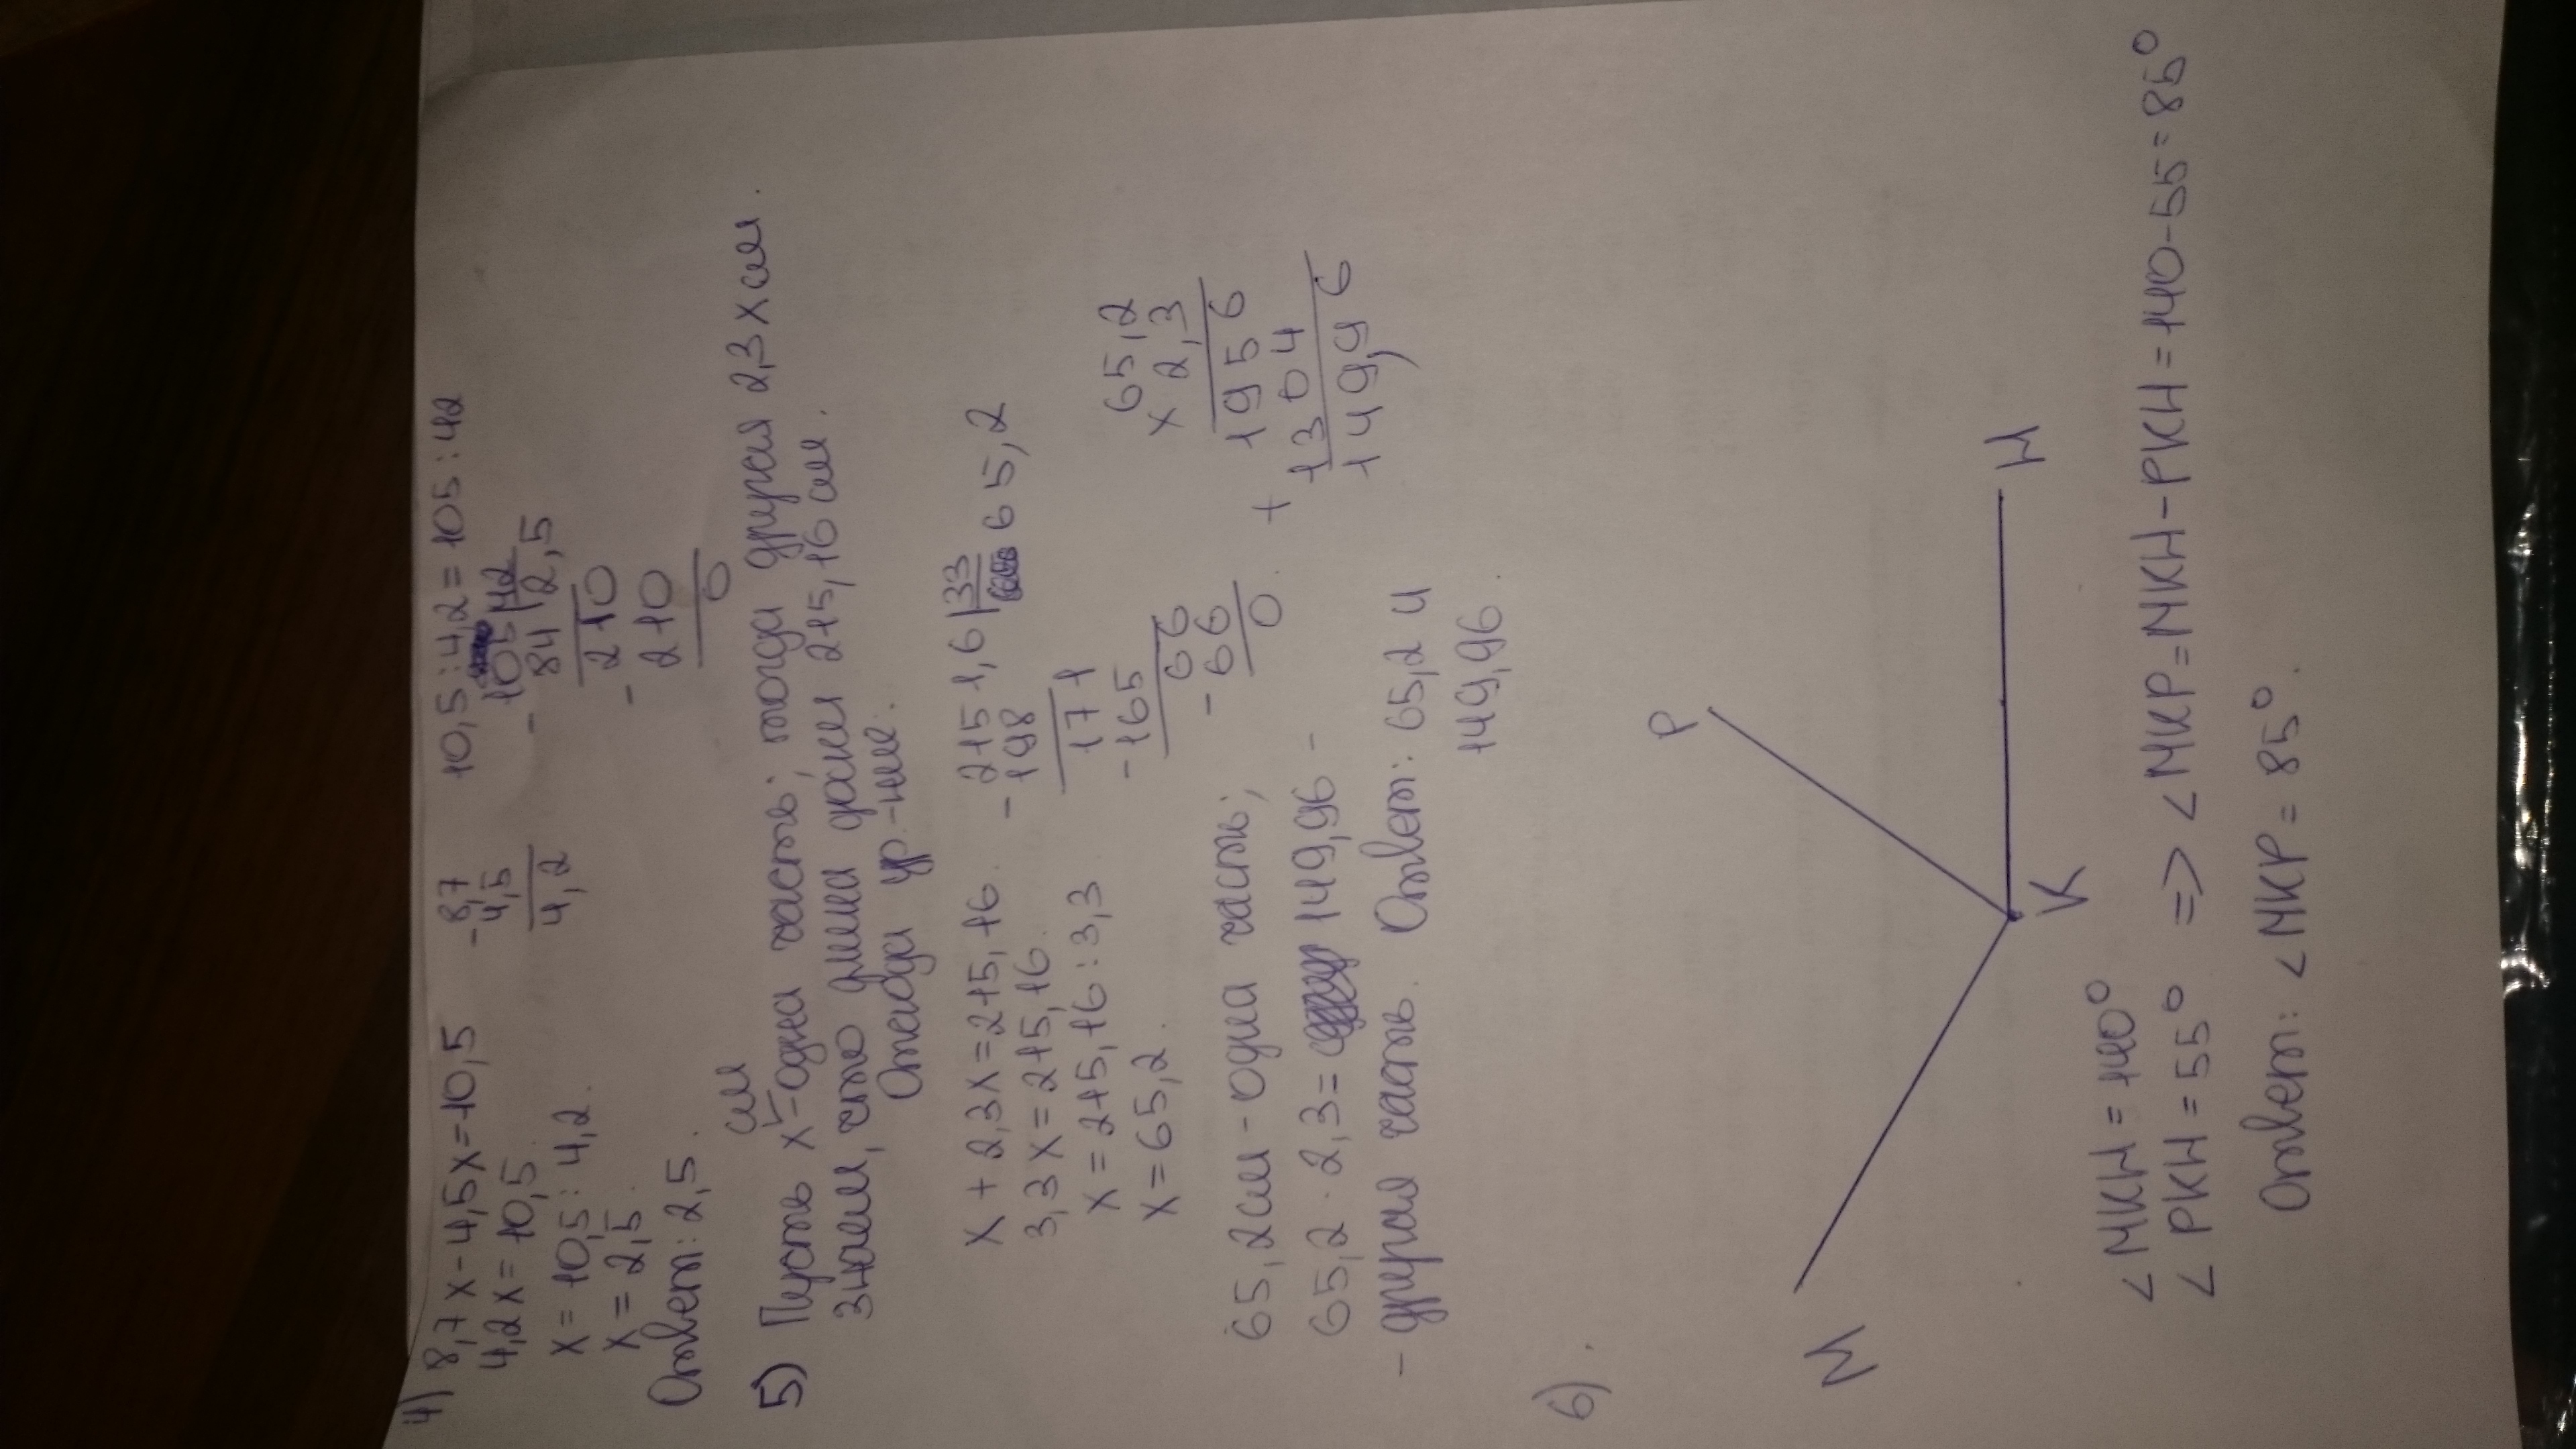 4) 8,7x-4,5x=10,5
4,2x=10,5
x=10,5:4,2.
x=2,5.
Ответ: 2,5.
-8,7
4,5
4,2
10,5:4,2=105:42
-105|42
84 2,5
-210
210
0
5) Пусть x см - одна часть; тогда другая 2,3x см.
знаем, что длина доски 215,16 см.
Отсюда ур-ние:
x+2,3x=215,16.
3,3x=215,16.
x=215,16:3,3
x=65,2.
-2151,6|33
198 65,2
171
-165
66
-66
0
65,2
x 2,3
1956
+
1304
149,96
65,2 см - одна часть;
65,2 · 2,3 = 149,96 -
- другая часть. Ответ: 65,2 и
149,96.
6).
P
M
K
H
<MKH=140°
<PKH=55° => <MKP=MKH-PKH=140-55=85°
Ответ: <MKP=85°.